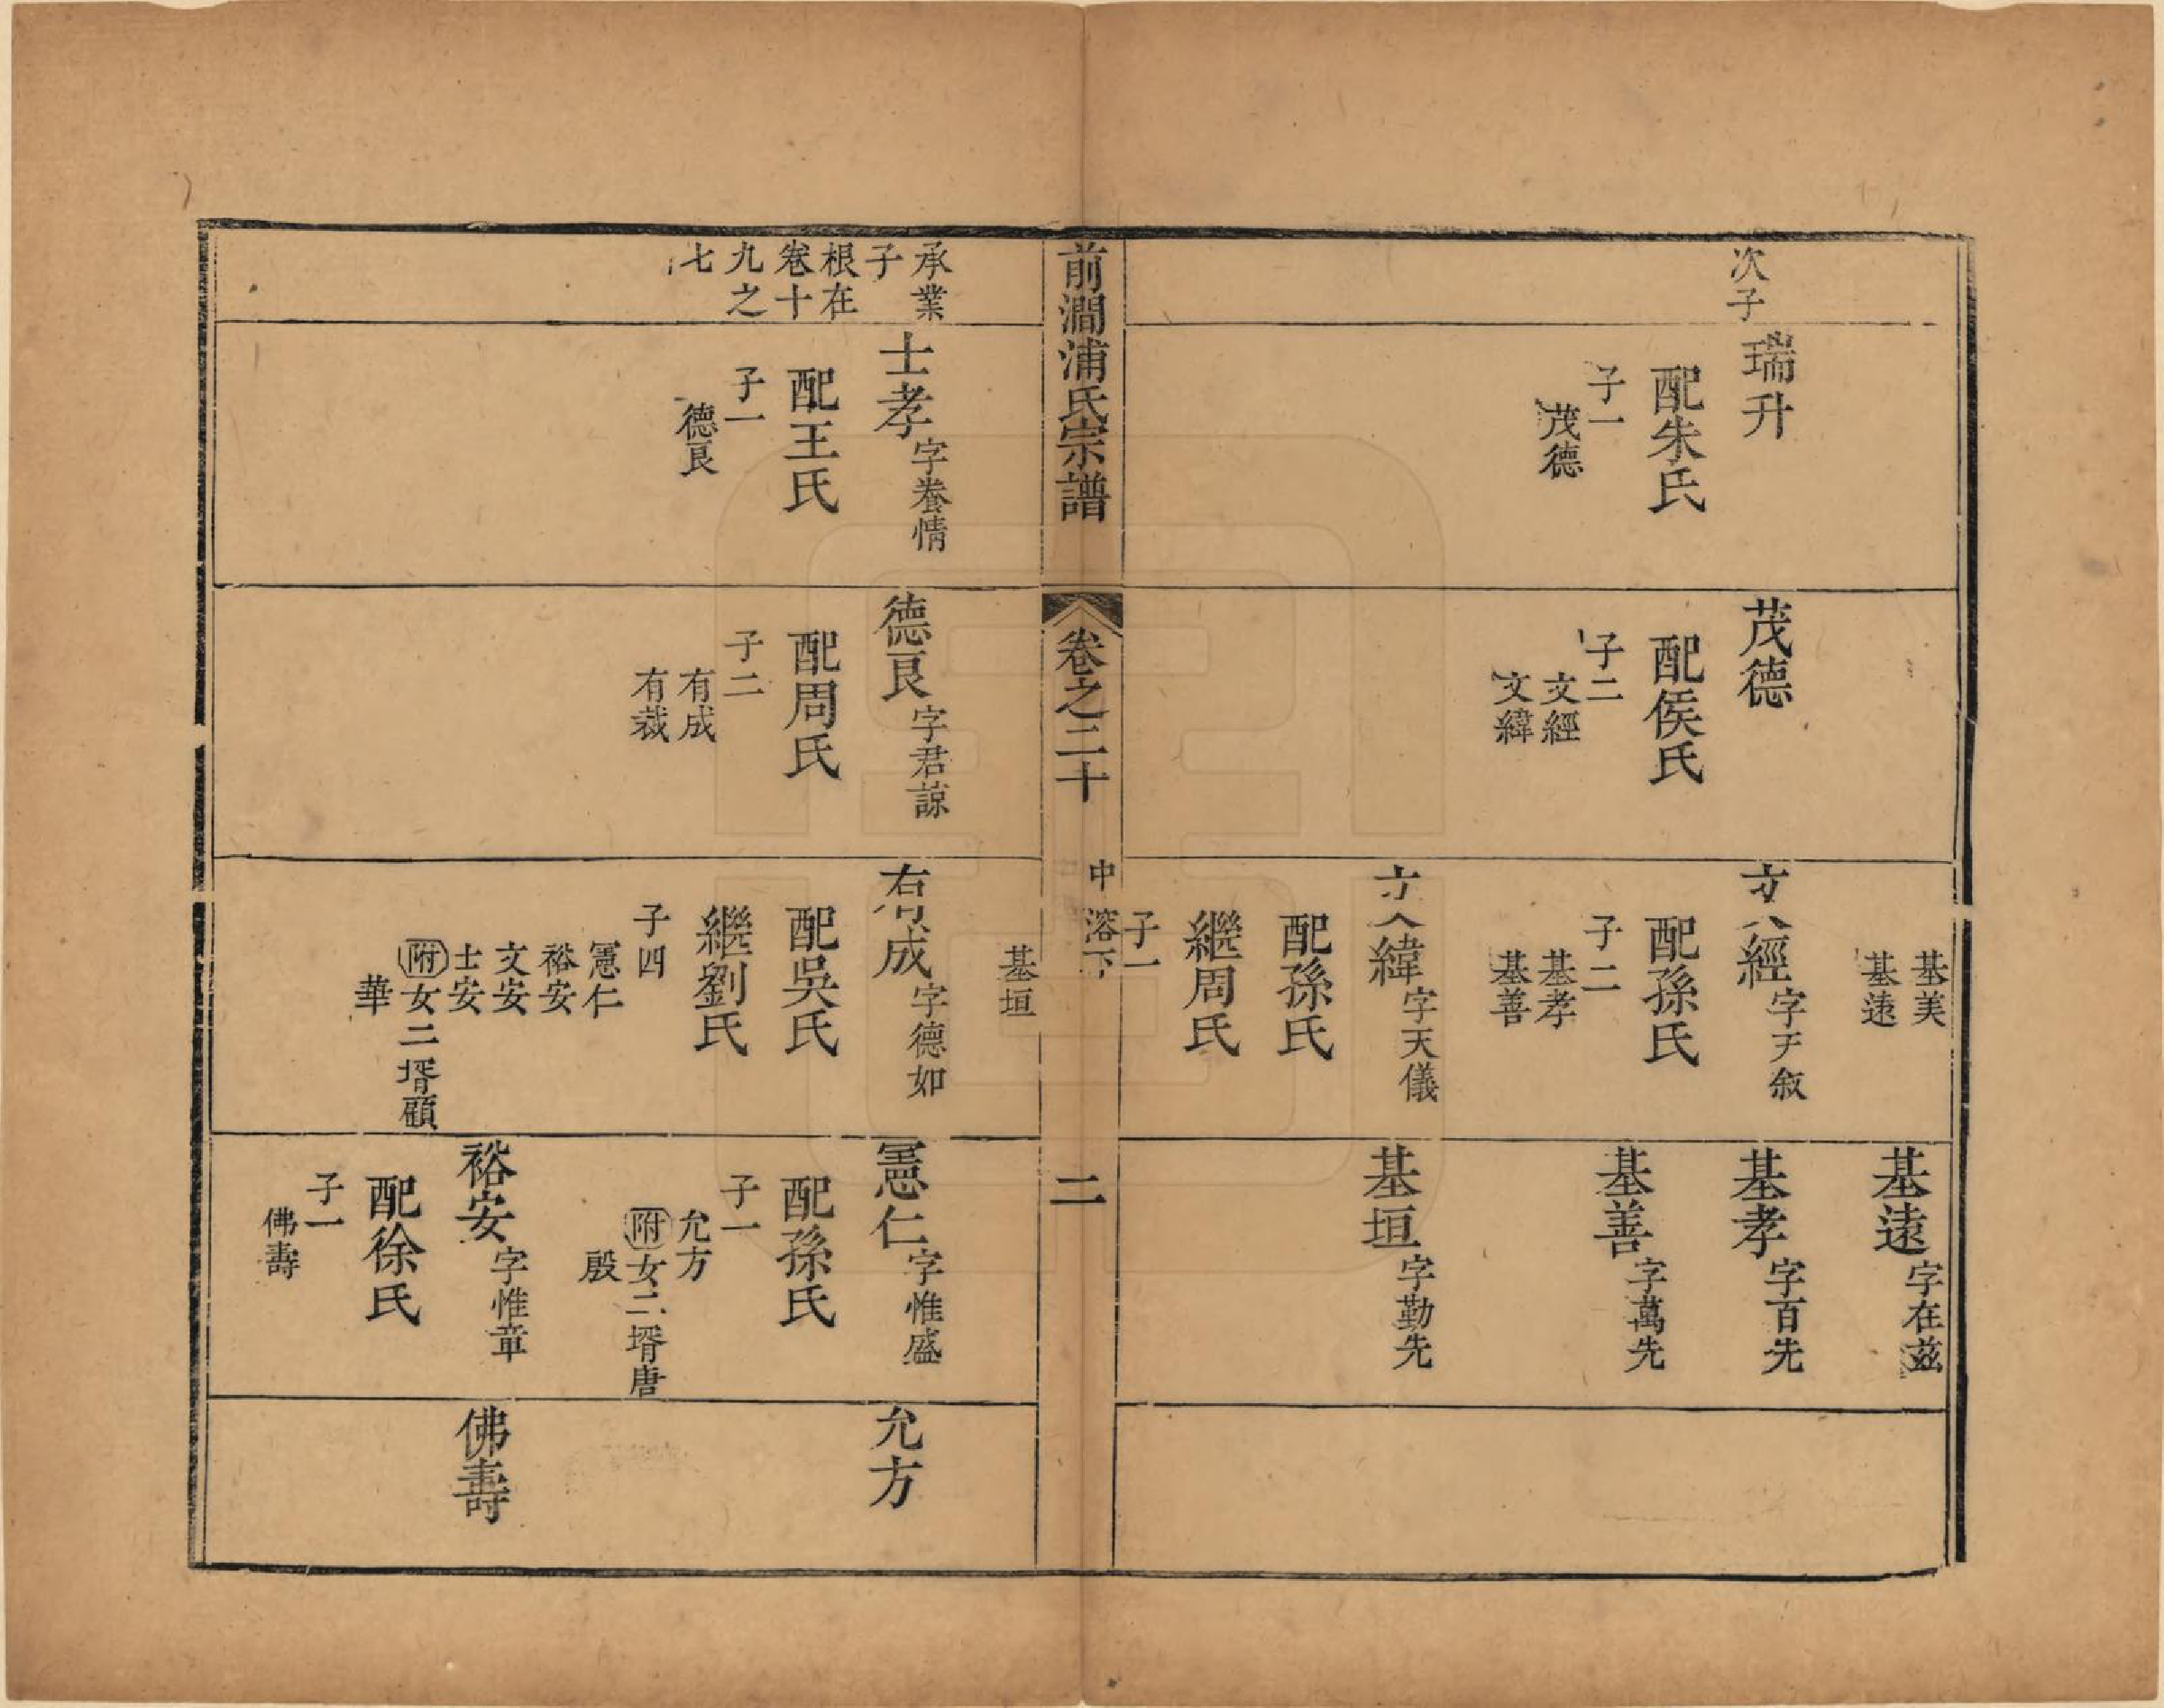 次子
瑞升
配朱氏
子一
茂德
茂德
配侯氏
子二
文經
文緯
基美
基遠
文經字天敘
配孫氏
子二
基孝
基善
文緯字天儀
配孫氏
繼周氏
子一
基遠字在茲
基孝字百先
基善字萬先
基垣字勤先
前澗浦氏宗譜
卷之二十
中溶下
二
承業
子
根在
卷十
九之
七
士孝字養情
配王氏
子一
德良
德良字君諒
配周氏
子二
有成
有裁
基垣
有成字德如
配吳氏
繼劉氏
子四
憲仁
裕安
文安
士安
附女二壻顧
華
憲仁字惟盛
配孫氏
子一
允方
附女二壻唐
殷
裕安字惟章
配徐氏
子一
佛壽
允方
佛壽